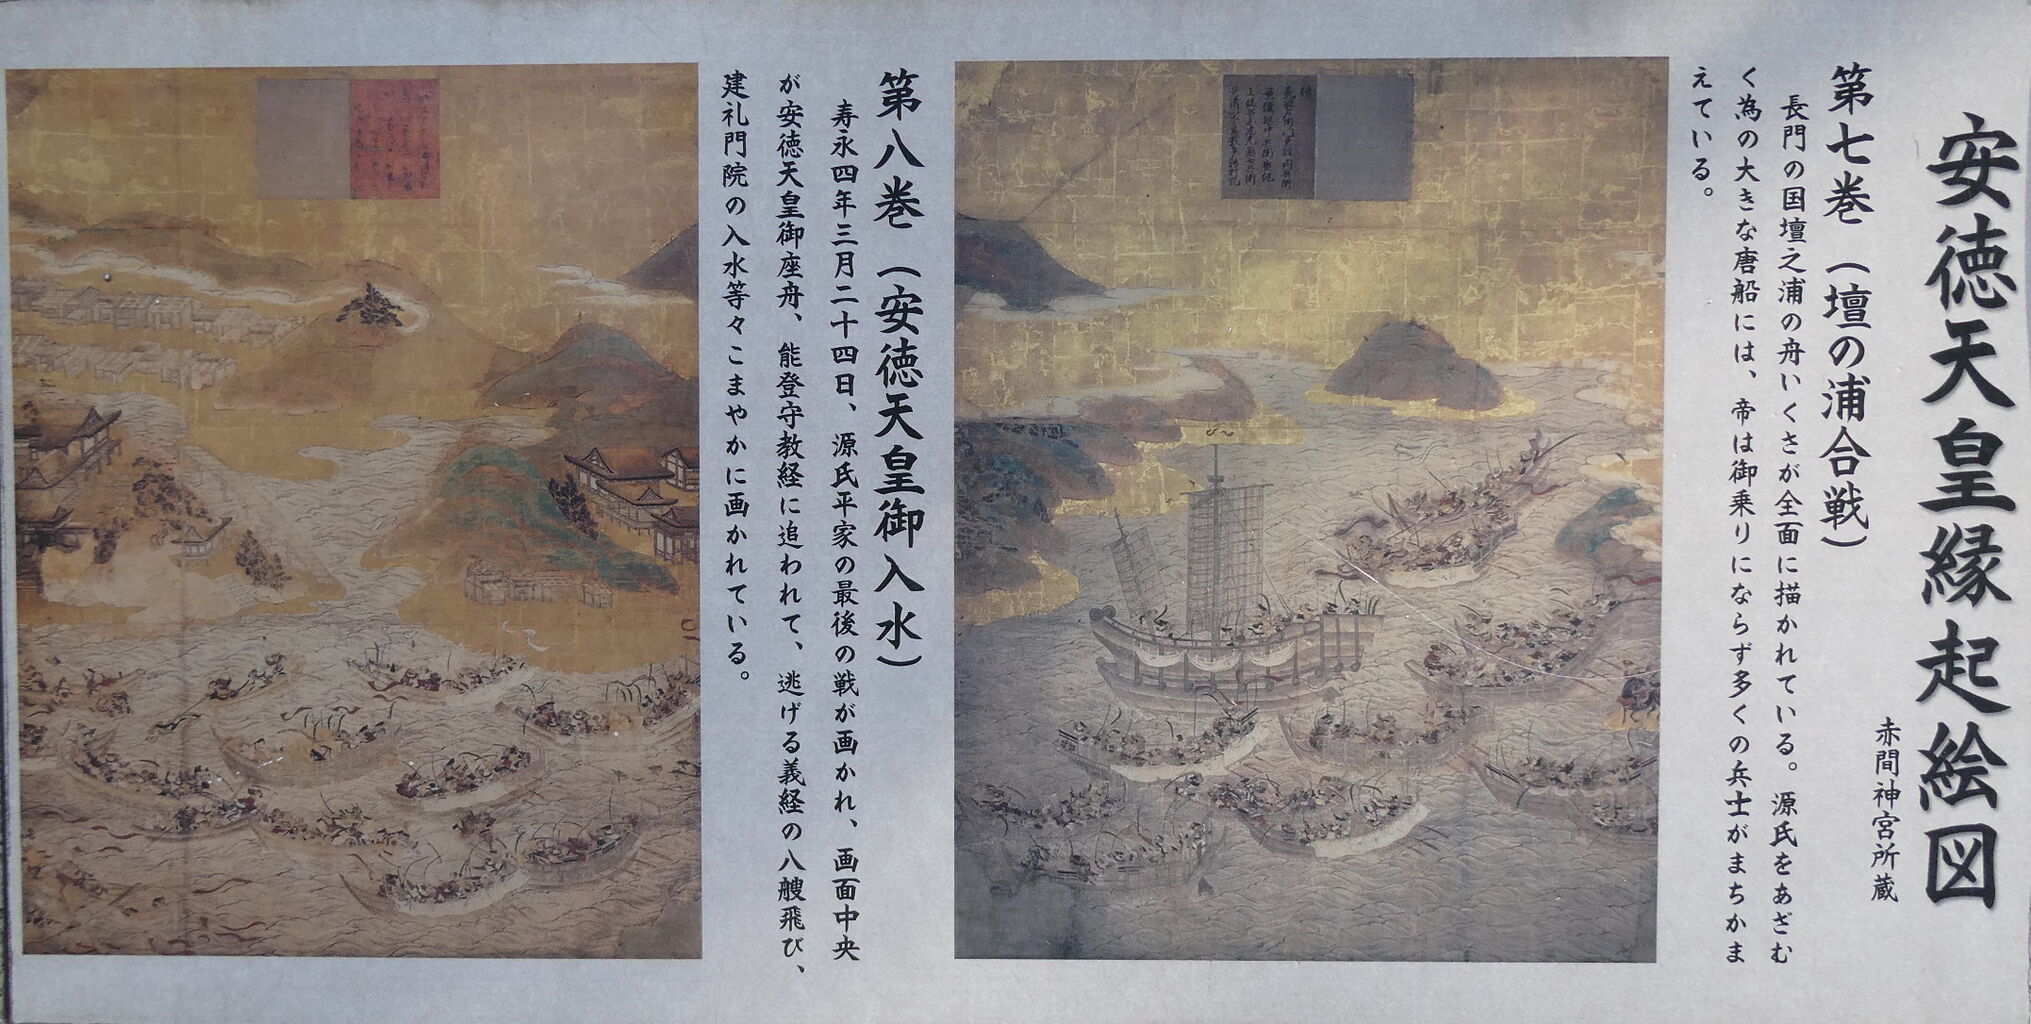 安徳天皇縁起絵図
赤間神宮所蔵
第七巻（壇の浦合戦）
長門の国壇之浦の舟いくさが全面に描かれている。源氏をあざむ
く為の大きな唐船には、帝は御乗りにならず多くの兵士がまちかま
えている。
第八巻（安徳天皇御入水）
寿永四年三月二十四日、源氏平家の最後の戦が画かれ、画面中央
が安徳天皇御座舟、能登守教経に追われて、逃げる義経の八艘飛び、
建礼門院の入水等々こまやかに画かれている。